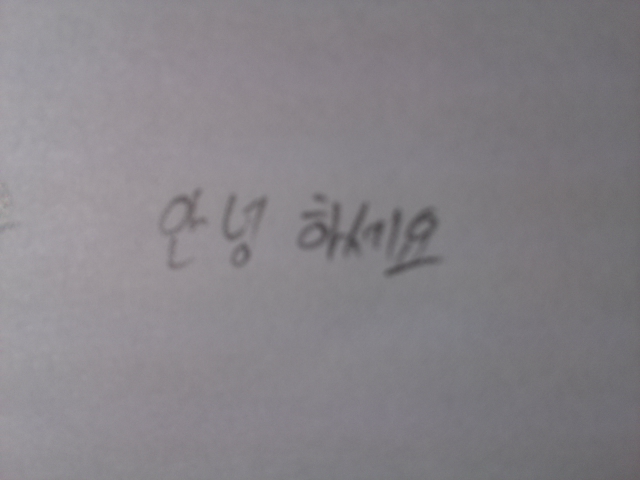 안녕 하세요